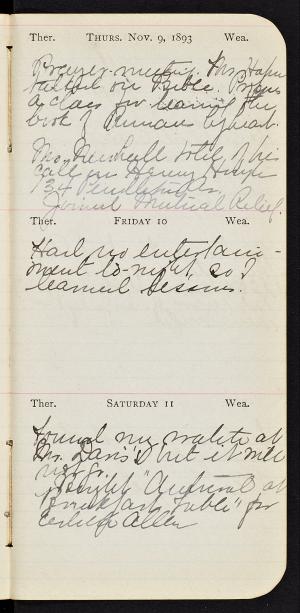 Ther. THURS. NOV. 9, 1893 Wea.
Prayer-meeting. Mr.
talked on Bible.
a class for learning the
book of Romans by heart.
Mr. told of his
call on Henry
134
Joined Mutual Relief.
Ther. FRIDAY 10 Wea.
Had no entertain-
ment to-night, so I
learned lessons.
Ther. SATURDAY 11 Wea.
Found my at
Mrs. Davis' but it will
not go.
Bought "Autocrat at
Breakfast Table" for
Allen